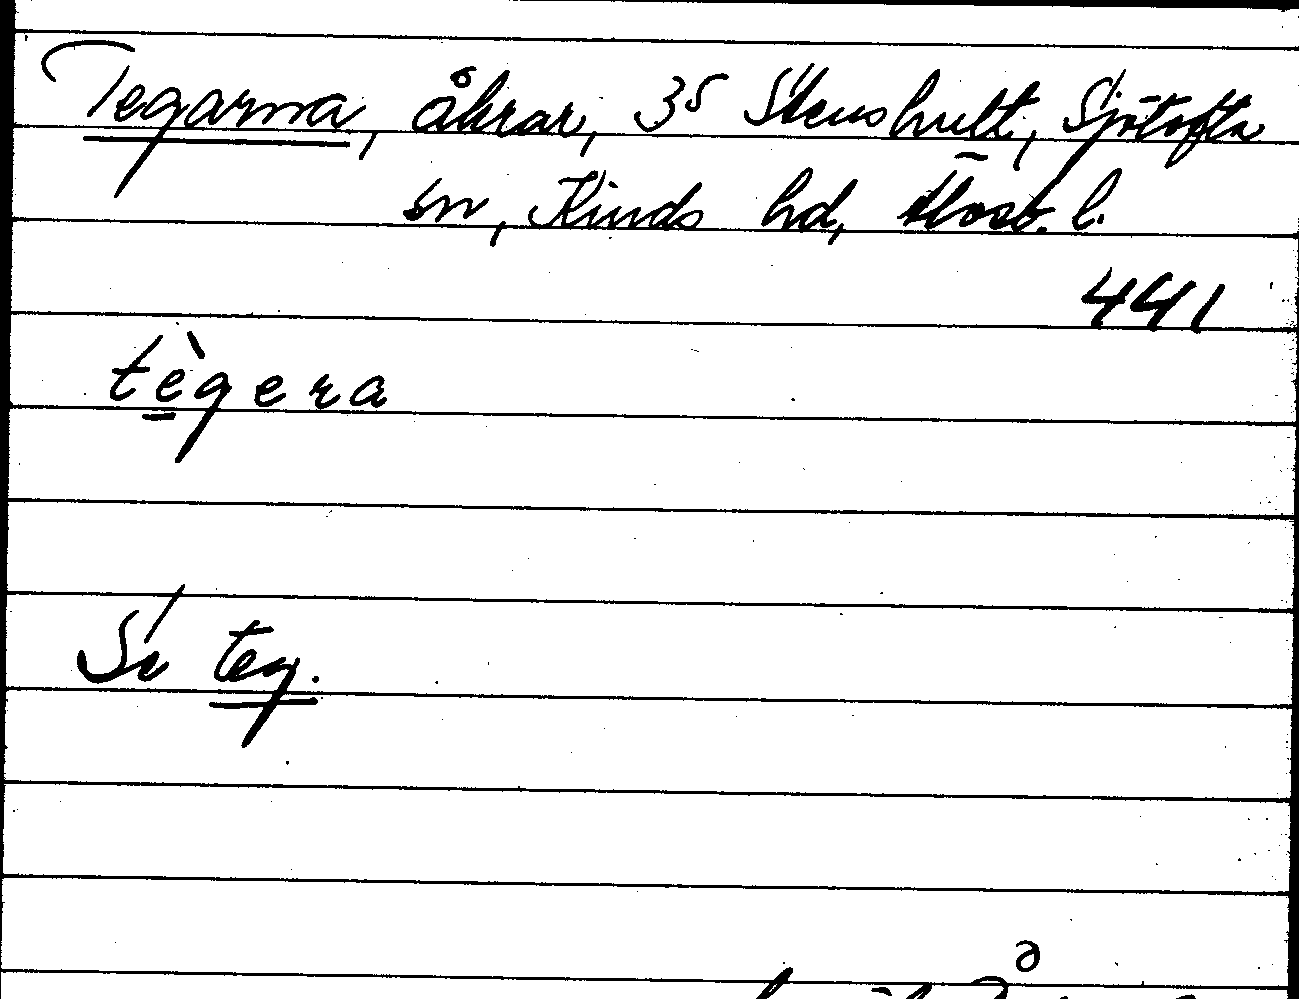 Tegarna, åkrar, 35 Stenshult, Sjötofta
sn, Kinds hd, Älvsb. l.
441
tègera
Se teg.